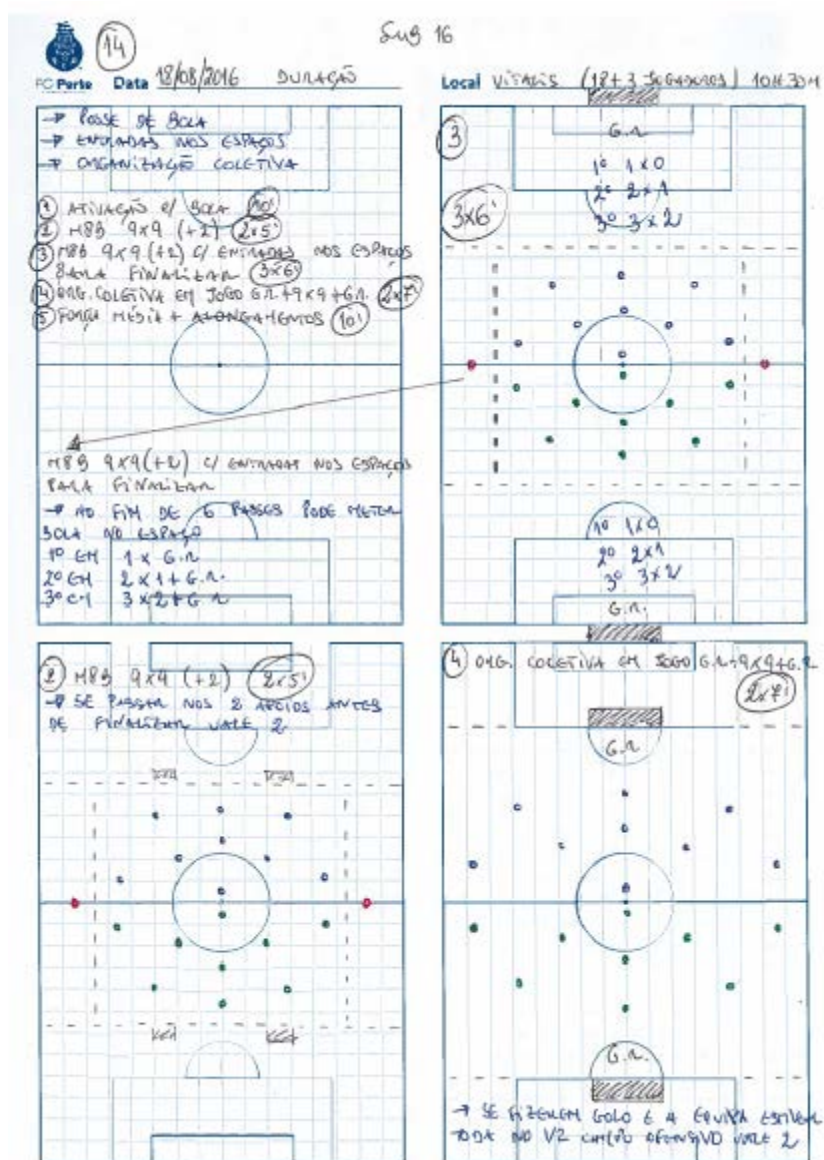 Sub 16
14
FC Porto Data 18/08/2016 DURAÇÃO
Local VITALIS (18+3 JOGADORES) 10H.30M
→ POSSE DE BOLA
→ ENTRADAS NOS ESPAÇOS
→ ORGANIZAÇÃO COLETIVA
1 ATIVAÇÃO c/ BOLA 10'
2 MBB 9x9 (+2) 2x5'
3 MBB 9x9 (+2) C/ ENTRADAS NOS ESPAÇOS
PARA FINALIZAR 3x6'
4 ORG. COLETIVA EM JOGO G.R.+9x9+G.R. 2x7'
5 FORÇA MÉDIA + ALONGAMENTOS 10'
MBB 9x9(+2) C/ ENTRADAS NOS ESPAÇOS
PARA FINALIZAR
→ AO FIM DE 6 PASSES PODE METER
BOLA NO ESPAÇO
1º EM 1 x G.R
2º EM 2 x 1 + G.R.
3º EM 3 x 2 + G.R
3
3x6'
G.R
1º 1x0
2º 2x1
3º 3x2
1º 1x0
2º 2x1
3º 3x2
G.R.
2 MBB 9x9 (+2) 2x5'
→ SE PASSAR NOS 2 APOIOS ANTES
DE FINALIZAR VALE 2
4 ORG. COLETIVA EM JOGO G.R+9x9+G.R
2x7'
G.R
G.R.
→ SE FIZEREM GOLO E A EQUIPA ESTIVER
TODA NO 1/2 CAMPO OFENSIVO VALE 2